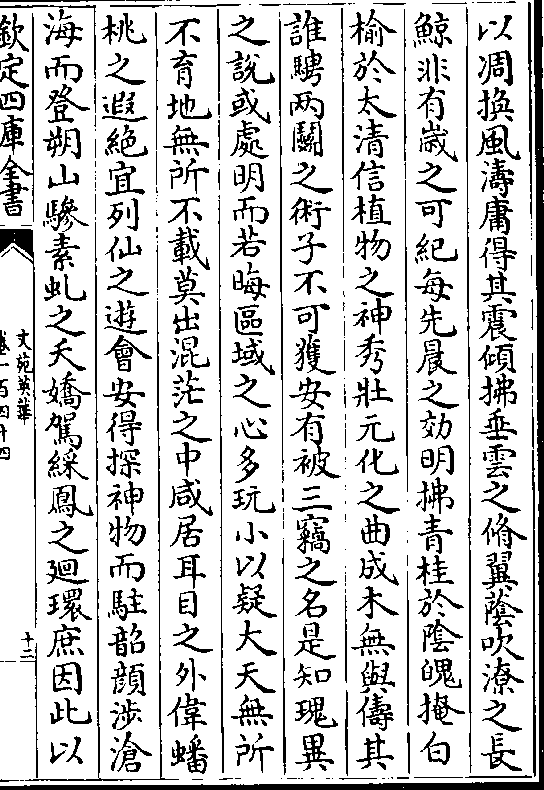 以凋換風濤庸得其震傾拂垂雲之脩翼蔭吹潦之長
鯨非有歲之可紀每先晨之効明拂青桂於陰魄掩白
榆於太清信植物之神秀壯元化之曲成木無與儔其
誰騁两闗之術子不可獲安有被三竊之名是知瑰異
之說或處明而若晦區域之心多玩小以疑大天無所
不育地無所不載莫出混茫之中咸居耳目之外偉蟠
桃之遐絶宜列仙之遊會安得探神物而駐韶顔涉滄
海而登朔山驂素虬之夭嬌駕綵鳳之廻環庶因此以
欽定四庫全書
文苑英華
卷一百四十四
十二